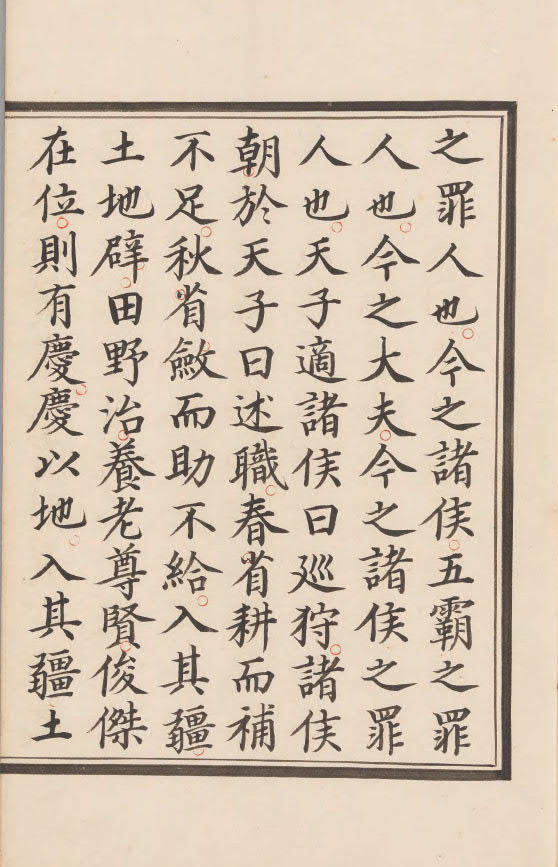 之罪人也今之諸侯五霸之罪
人也今之大夫今之諸侯之罪
人也天子適諸侯曰廵狩諸侯
朝於天子曰述職春省耕而補
不足秋省斂而助不給入其疆
土地辟田野治養老尊賢俊傑
在位則有慶慶以地入其疆土